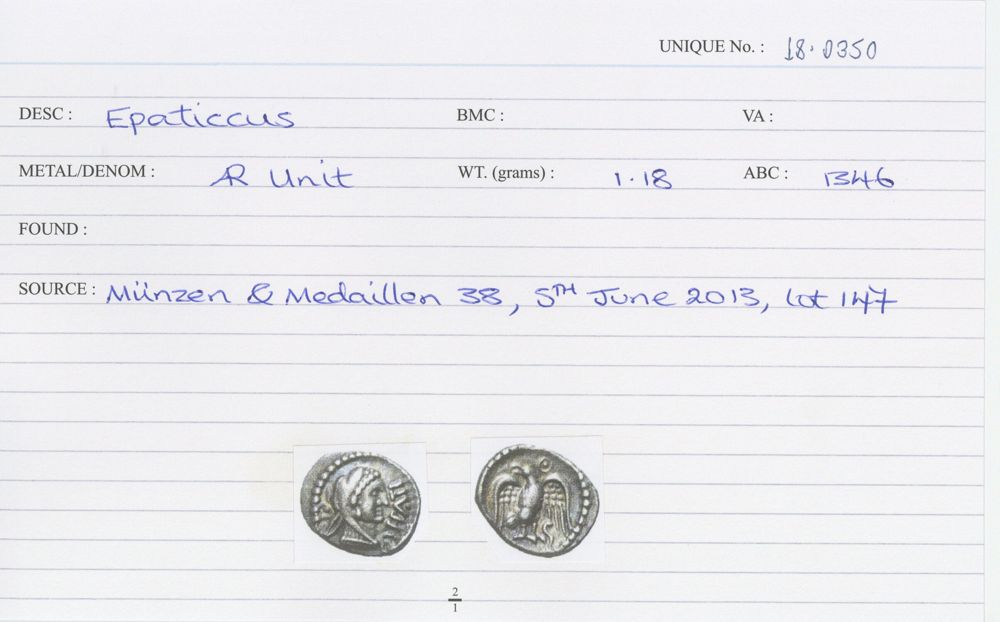 UNIQUE No. : 18.0350
DESC : Epaticcus BMC : VA :
METAL/DENOM : AR Unit WT. (grams) : 1.18 ABC : 1346
FOUND :
SOURCE : Münzen & Medaillen 38, 5TH June 2013, lot 147
2
1